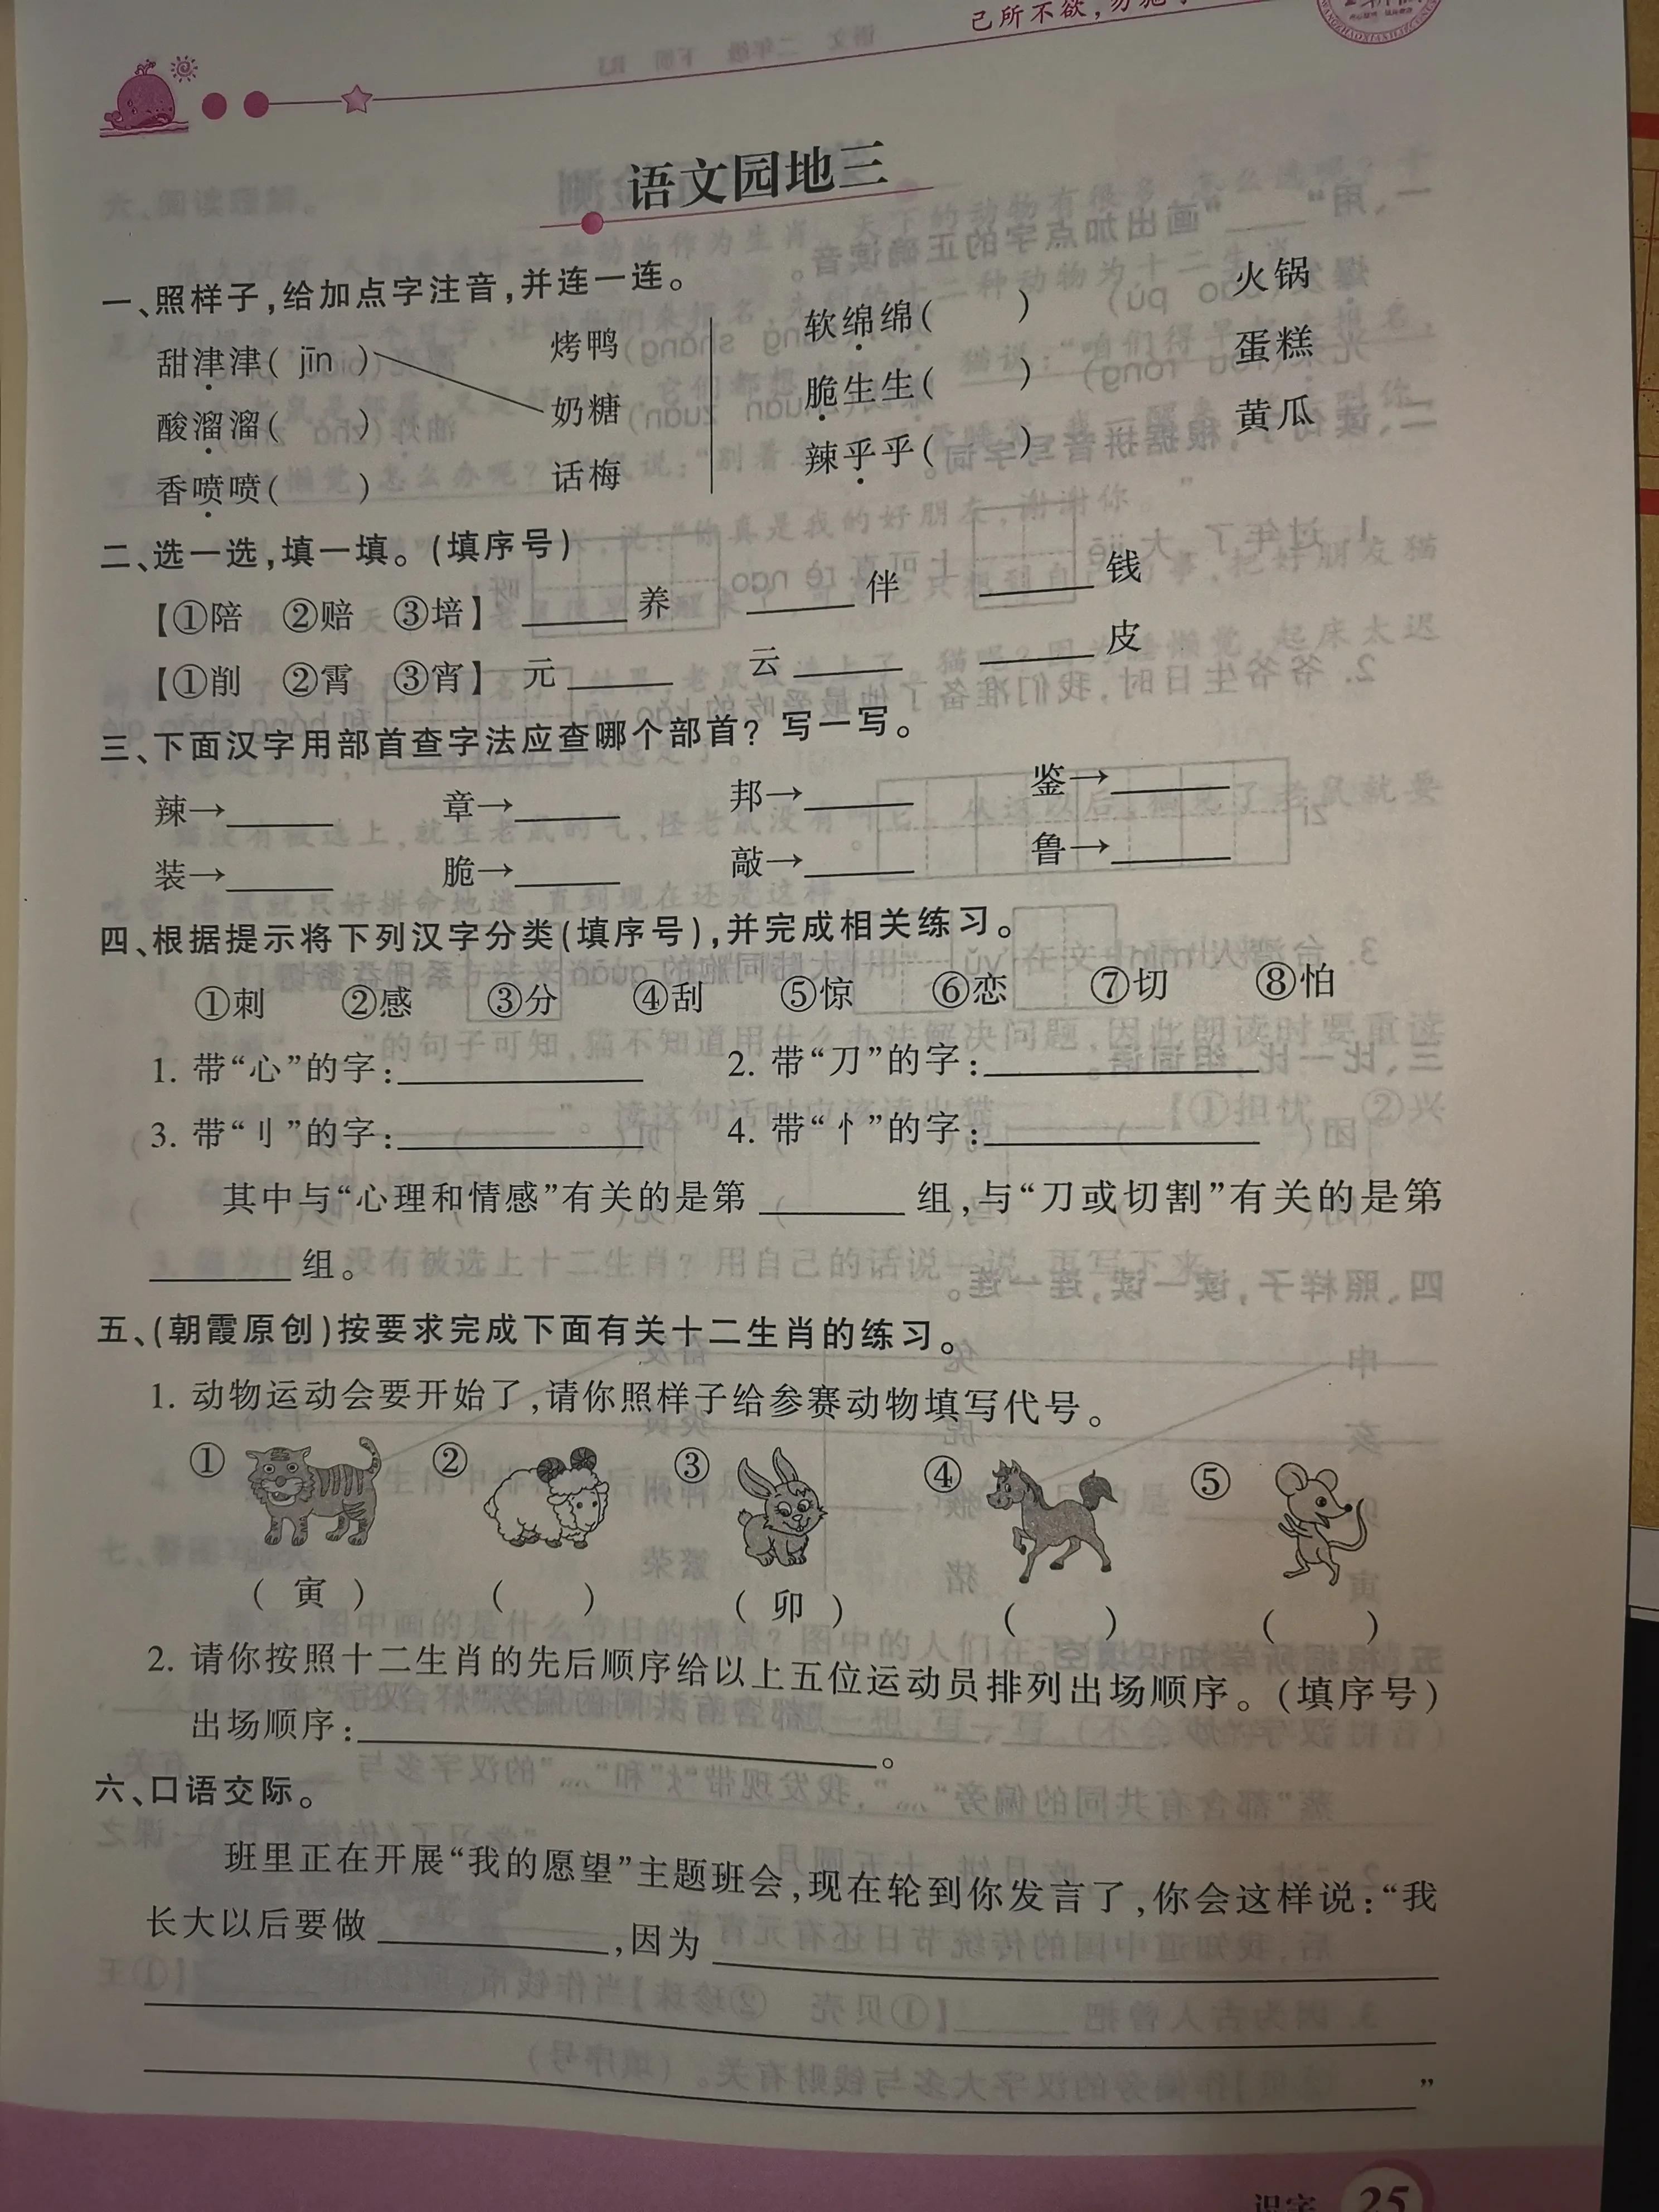 己所不欲,勿施于
语文园地三
一、照样子,给加点字注音,并连一连。
甜津津( jīn ) 烤鸭 软绵绵( ) 火锅
酸溜溜( ) 奶糖 脆生生( ) 蛋糕
香喷喷( ) 话梅 辣乎乎( ) 黄瓜
二、选一选,填一填。(填序号)
【①陪 ②赔 ③培】 ______养 ______伴 ______钱
【①削 ②霄 ③宵】 元______ 云______ ______皮
三、下面汉字用部首查字法应查哪个部首? 写一写。
辣→______ 章→______ 邦→______ 鉴→______
装→______ 脆→______ 敲→______ 鲁→______
四、根据提示将下列汉字分类(填序号),并完成相关练习。
①刺 ②感 ③分 ④刮 ⑤惊 ⑥恋 ⑦切 ⑧怕
1. 带“心”的字:____________ 2. 带“刀”的字:____________
3. 带“刂”的字:____________ 4. 带“忄”的字:____________
其中与“心理和情感”有关的是第______组,与“刀或切割”有关的是第
______组。
五、(朝霞原创)按要求完成下面有关十二生肖的练习。
1. 动物运动会要开始了,请你照样子给参赛动物填写代号。
① ② ③ ④ ⑤
( 寅 ) ( ) ( 卯 ) ( ) ( )
2. 请你按照十二生肖的先后顺序给以上五位运动员排列出场顺序。(填序号)
出场顺序:____________。
六、口语交际。
班里正在开展“我的愿望”主题班会,现在轮到你发言了,你会这样说:“我
长大以后要做____________,因为____________
”
识字 25